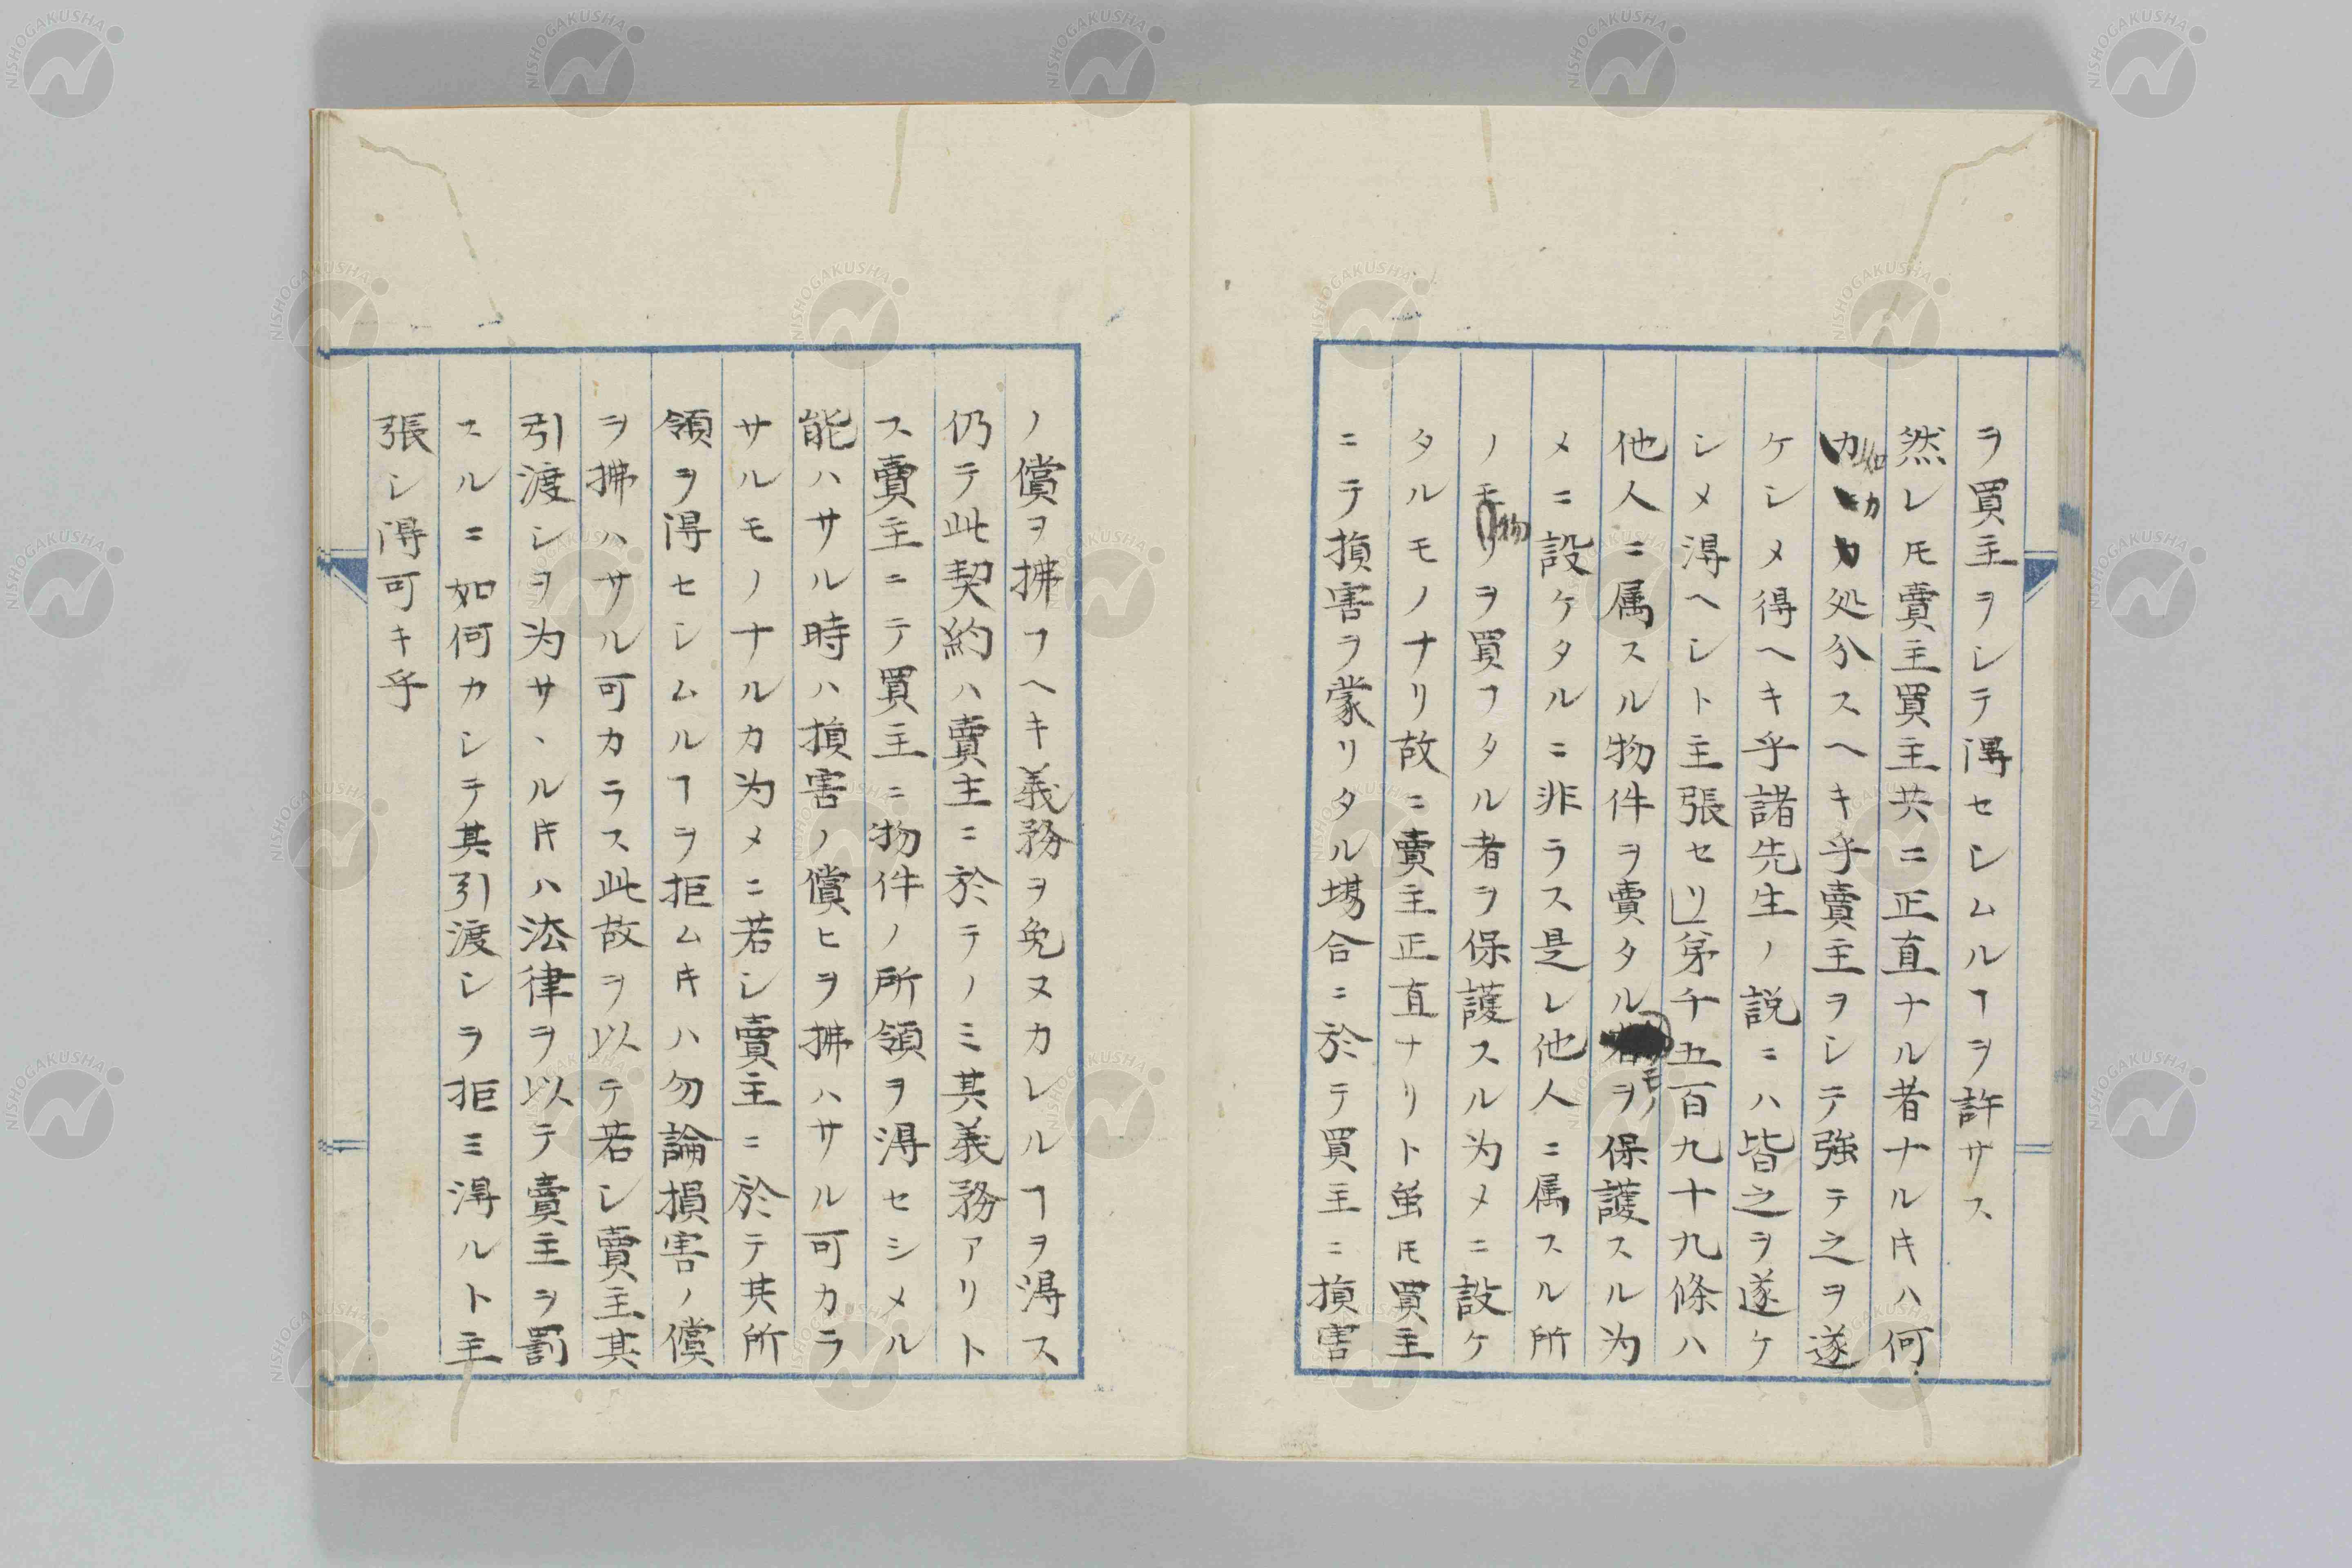 ヲ買主ヲシテ得セシムルヿヲ許サス
然レ𪜈賣主買主共ニ正直ナル者ナルキハ何
如カ処分スヘキ乎賣主ヲシテ強テ之ヲ遂
ケシメ得ヘキ乎諸先生ノ説ニハ皆之ヲ遂ケ
シメ得ヘシト主張セリ」第千五百九十九條ハ
他人ニ属スル物件ヲ賣タルモノヲ保護スル为
メニ設ケタルニ非ラス是レ他人ニ属スル所
ノ物ヲ買フタル者ヲ保護スル为メニ設ケ
タルモノナリ故ニ賣主正直ナリト虽𪜈買主
ニテ損害ヲ蒙リタル場合ニ於テ買主ニ損害
ノ償ヲ拂フヘキ義務ヲ免ヌカレルヿヲ得ス
仍テ此契約ハ賣主ニ於テノミ其義務アリト
ス賣主ニテ買主ニ物件ノ所領ヲ得セシメル
能ハサル時ハ損害ノ償ヒヲ拂ハサル可カラ
サルモノナルカ为メニ若シ賣主ニ於テ其所
領ヲ得セシムルヿヲ拒ムキハ勿論損害ノ償
ヲ拂ハサル可カラス此故ヲ以テ若シ賣主其
引渡シヲ为サヽルキハ法律ヲ以テ賣主ヲ罰
スルニ如何カシテ其引渡シヲ拒ミ得ルト主
張シ得可キ乎
NISHOGAKUSHA